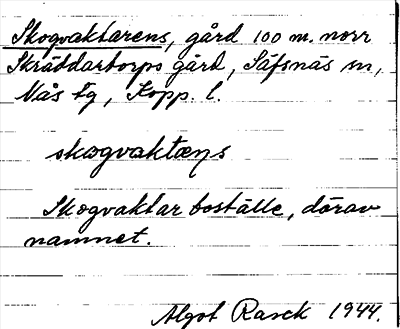 Skogvaktarens, gård 100 m. norr
Skräddartorps gård, Säfsnäs sn,
Nås tg, Kopp. l.
skogvaktæns
Skogvaktar boställe, därav
namnet.
Algot Rasck 1944.